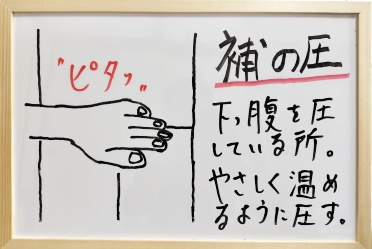 "ピタッ"
補の圧
下っ腹を圧
している所。
やさしく温め
るように圧す。